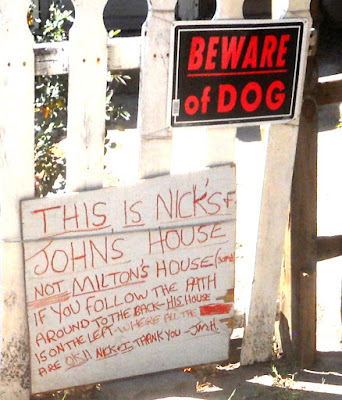 BEWARE
of DOG
THIS IS NICK'S &
JOHNS HOUSE
NOT MILTON'S HOUSE
IF YOU FOLLOW THE PATH
AROUND TO THE BACK - HIS HOUSE
IS ON THE LEFT - WHERE ALL THE
ARE !! NICK & I THANK YOU -